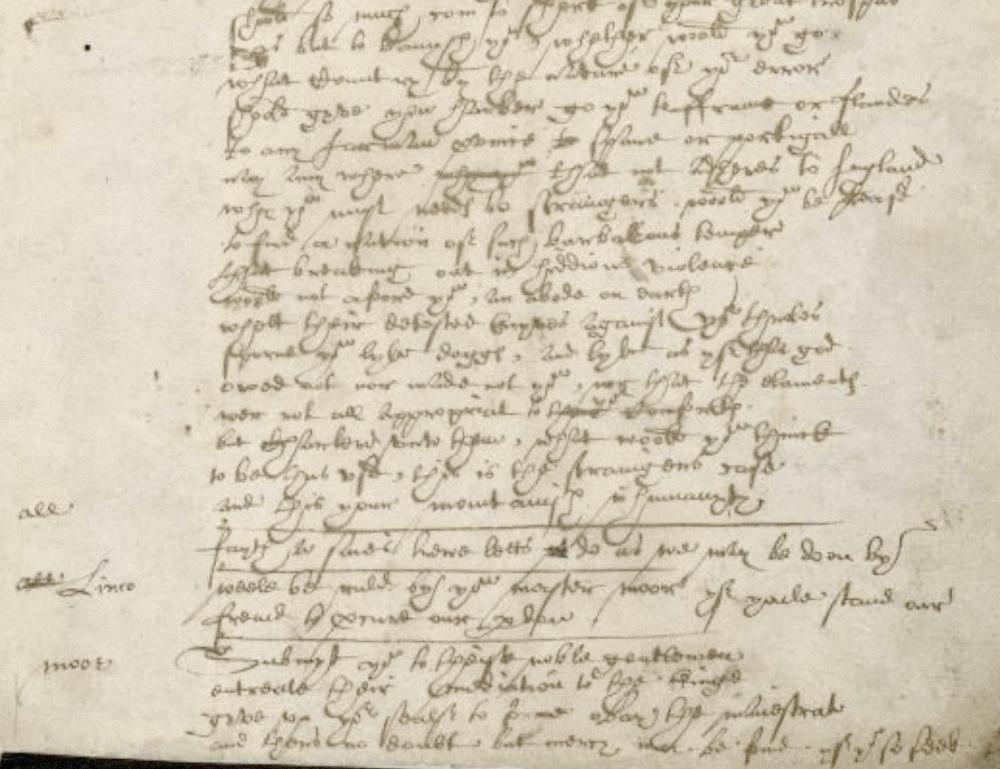 shold so much com to short of your great trespas
as but to banysh you whether woold you go.
what Country by the nature of yor error
shoold gyve you harber go you to ffraunc or flanders
to any Jarman province to spane or portigall
nay any where that not adheres to Ingland
why you must needs be straingers. woold you be pleasd
to find a nation of such barbarous temper
that breaking out in hiddious violence
woold not afoord you, an abode on earth
whett their detested knyves against yor throtes
spurne you lyke doggs, and lyke as yf that god
owed not nor made not you, nor that the elaments
wer not all appropriat to yor Comforts.
but Charterd unto them, what woold you thinck
to be thus usd, this is the straingers case
and this your mountanish inhumanyty.
all fayth a saies trewe letts do as we may be doon by
all Linco weele be ruld by you master moor yf youle stand our
freind to procure our pdon
moor Submyt you to theise noble gentlemen
entreate their mediation to the kinge
gyve up yor sealf to forme obay the maiestrate
and thers no doubt, but mercy may be found. yf you so seek